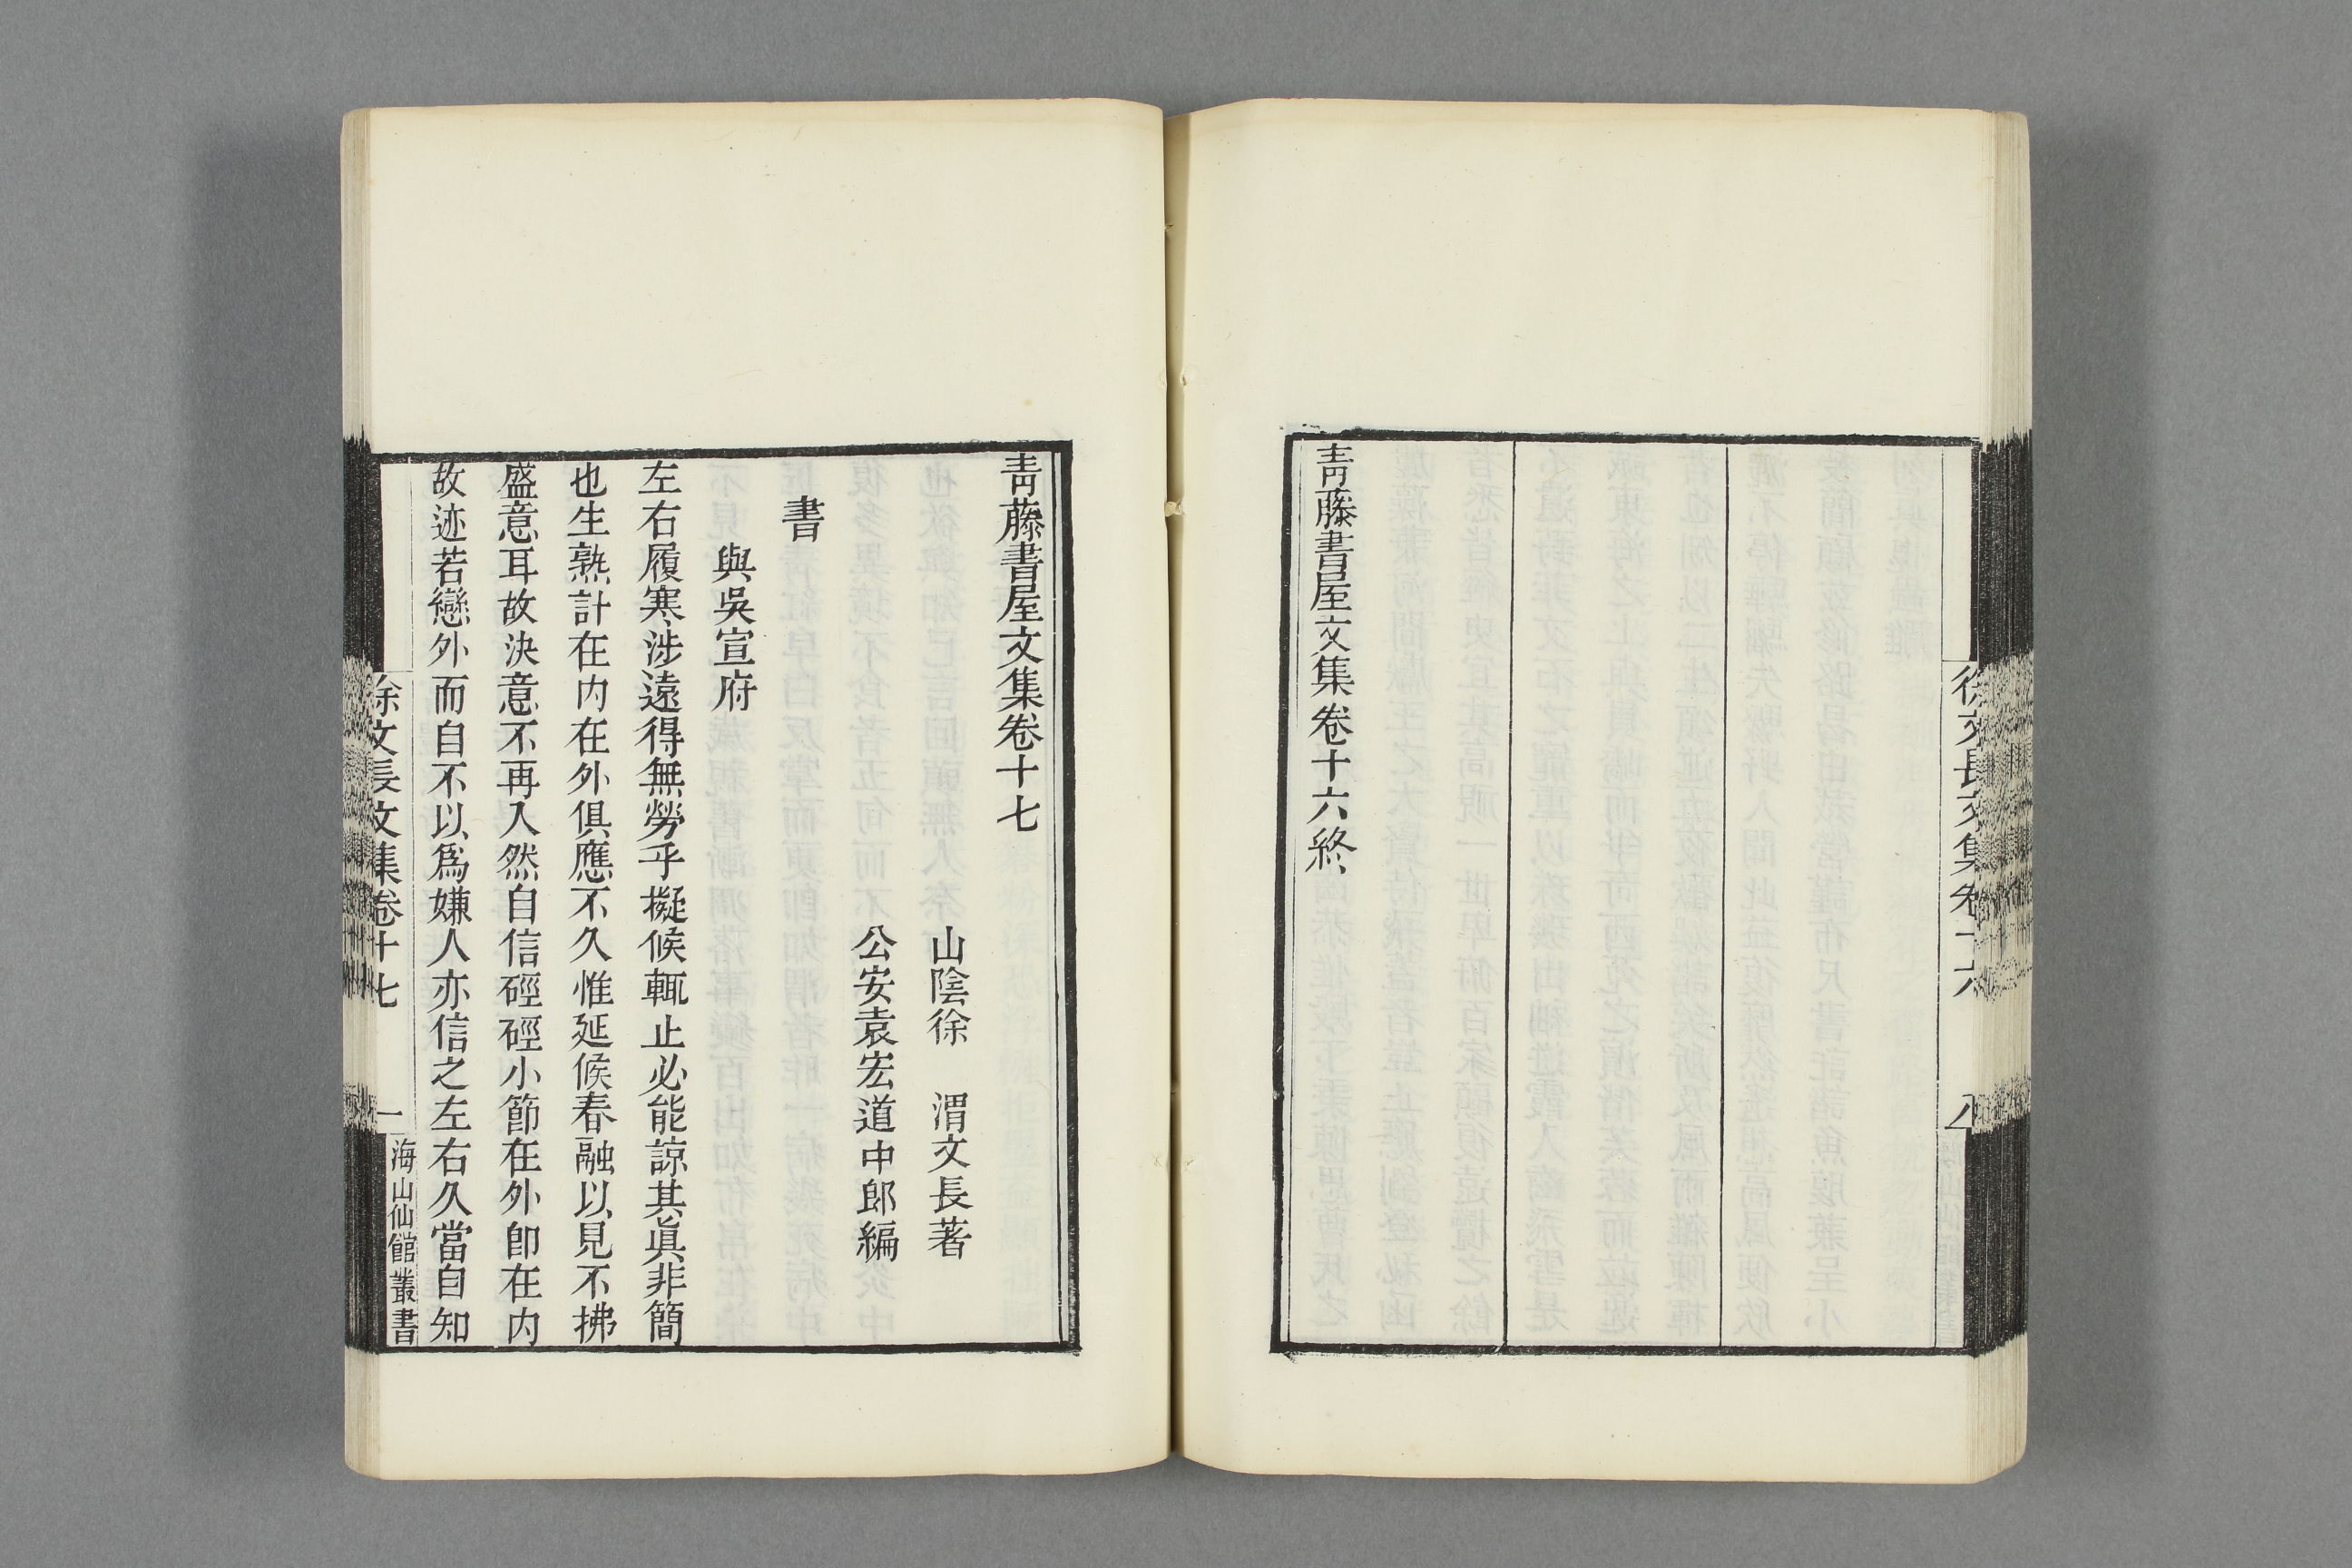 徐文長文集卷十六
八
青藤書屋文集卷十六終
青藤書屋文集卷十七
山陰徐　渭文長著
公安袁宏道中郎編
書
與吳宣府
左右履寒涉遠得無勞乎擬候輒止必能諒其眞非簡
也生熟計在内在外俱應不久惟延候春融以見不拂
盛意耳故決意不再入然自信硜硜小節在外卽在内
故迹若戀外而自不以爲嫌人亦信之左右久當自知
徐文長文集卷十七
一
海山仙館叢書